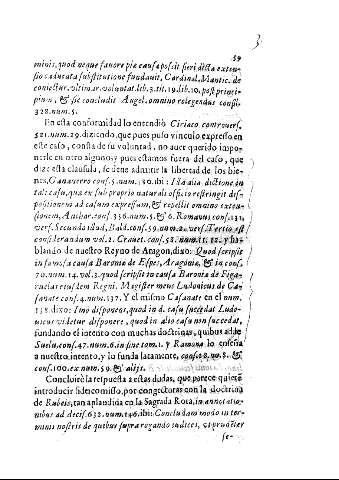 3.
59
minis, quod neque fauore piæ causæ possit fieri dicta exten-
sio caducata substitutione fundauit, Cardinal, Mantic. de
coniectur. vltimar. voluntat. lib. 3. tit. 19. lib. 10. post princi-
pium, & sic concludit Angel. omnino relegendus consil.
328. num. 5.
En esta conformidad lo entendiò Ciriaco controuers.
521. num. 29. diziendo, que pues puso vinculo expresso en
este caso, consta de su voluntad, no auer querido impo-
nerle en otro alguno; y pues estamos fuera del caso, que
dict a clausula, se deue admitir la libertad de los bie-
nes, Ganauerro cons. 5. num. 130. ibi: Ista alia dictione in
tali casu, qua ex sub proprio naturali officio restringit dis-
positionem ad casum expressum, & repellit omnino exten-
sionem, Anchar. cons. 336. num. 5. & 6. Romanus cons. 131.
vers. Secundo istud, Bald. cons. 59. num. 2. vers. Tertio est
considerandum vol. 2. Crauet. cons. 58. num. 11. 12. y ha-
blando de nuestro Reyno de Aragon, dixo: Quod scripsit
in famosa causa Baronia de Espes, Aragonia, & in cons.
70. num. 14. vol. 3. quod scripsit in causa Baronia de Figa-
ruelas eiusdem Regni. Magister meus Ludouicus de Ca-
sanate cons. 4. num. 137. Y el mismo Casanate en el num.
138. dixo: Imo disponeos, quod in d. casu succedat Ludo-
uicus videtur disponere, quod in alio casu non succedat,
fundando el intento con muchas doctrinas, quibus adde
Suelu, cons. 47. num. 6. in fine tom. 1. y Ramona lo enseña
a nuestro intento, y lo funda latamente, cons. 18. n. 8. &
cons. 100. ex num. 59. & alijs.
Concluirè la respuesta a estas dudas, que parece quieren
introducir fideicomisso, por congecturas con la doctrina
de Rubeis, tan aplaudida en la Sagrada Rota, in annotatio-
nibus ad decis. 632. num. 146. ibi: Concludam modo in ter-
minis nostris de quibus supra rogando iudices, vt præter
se-